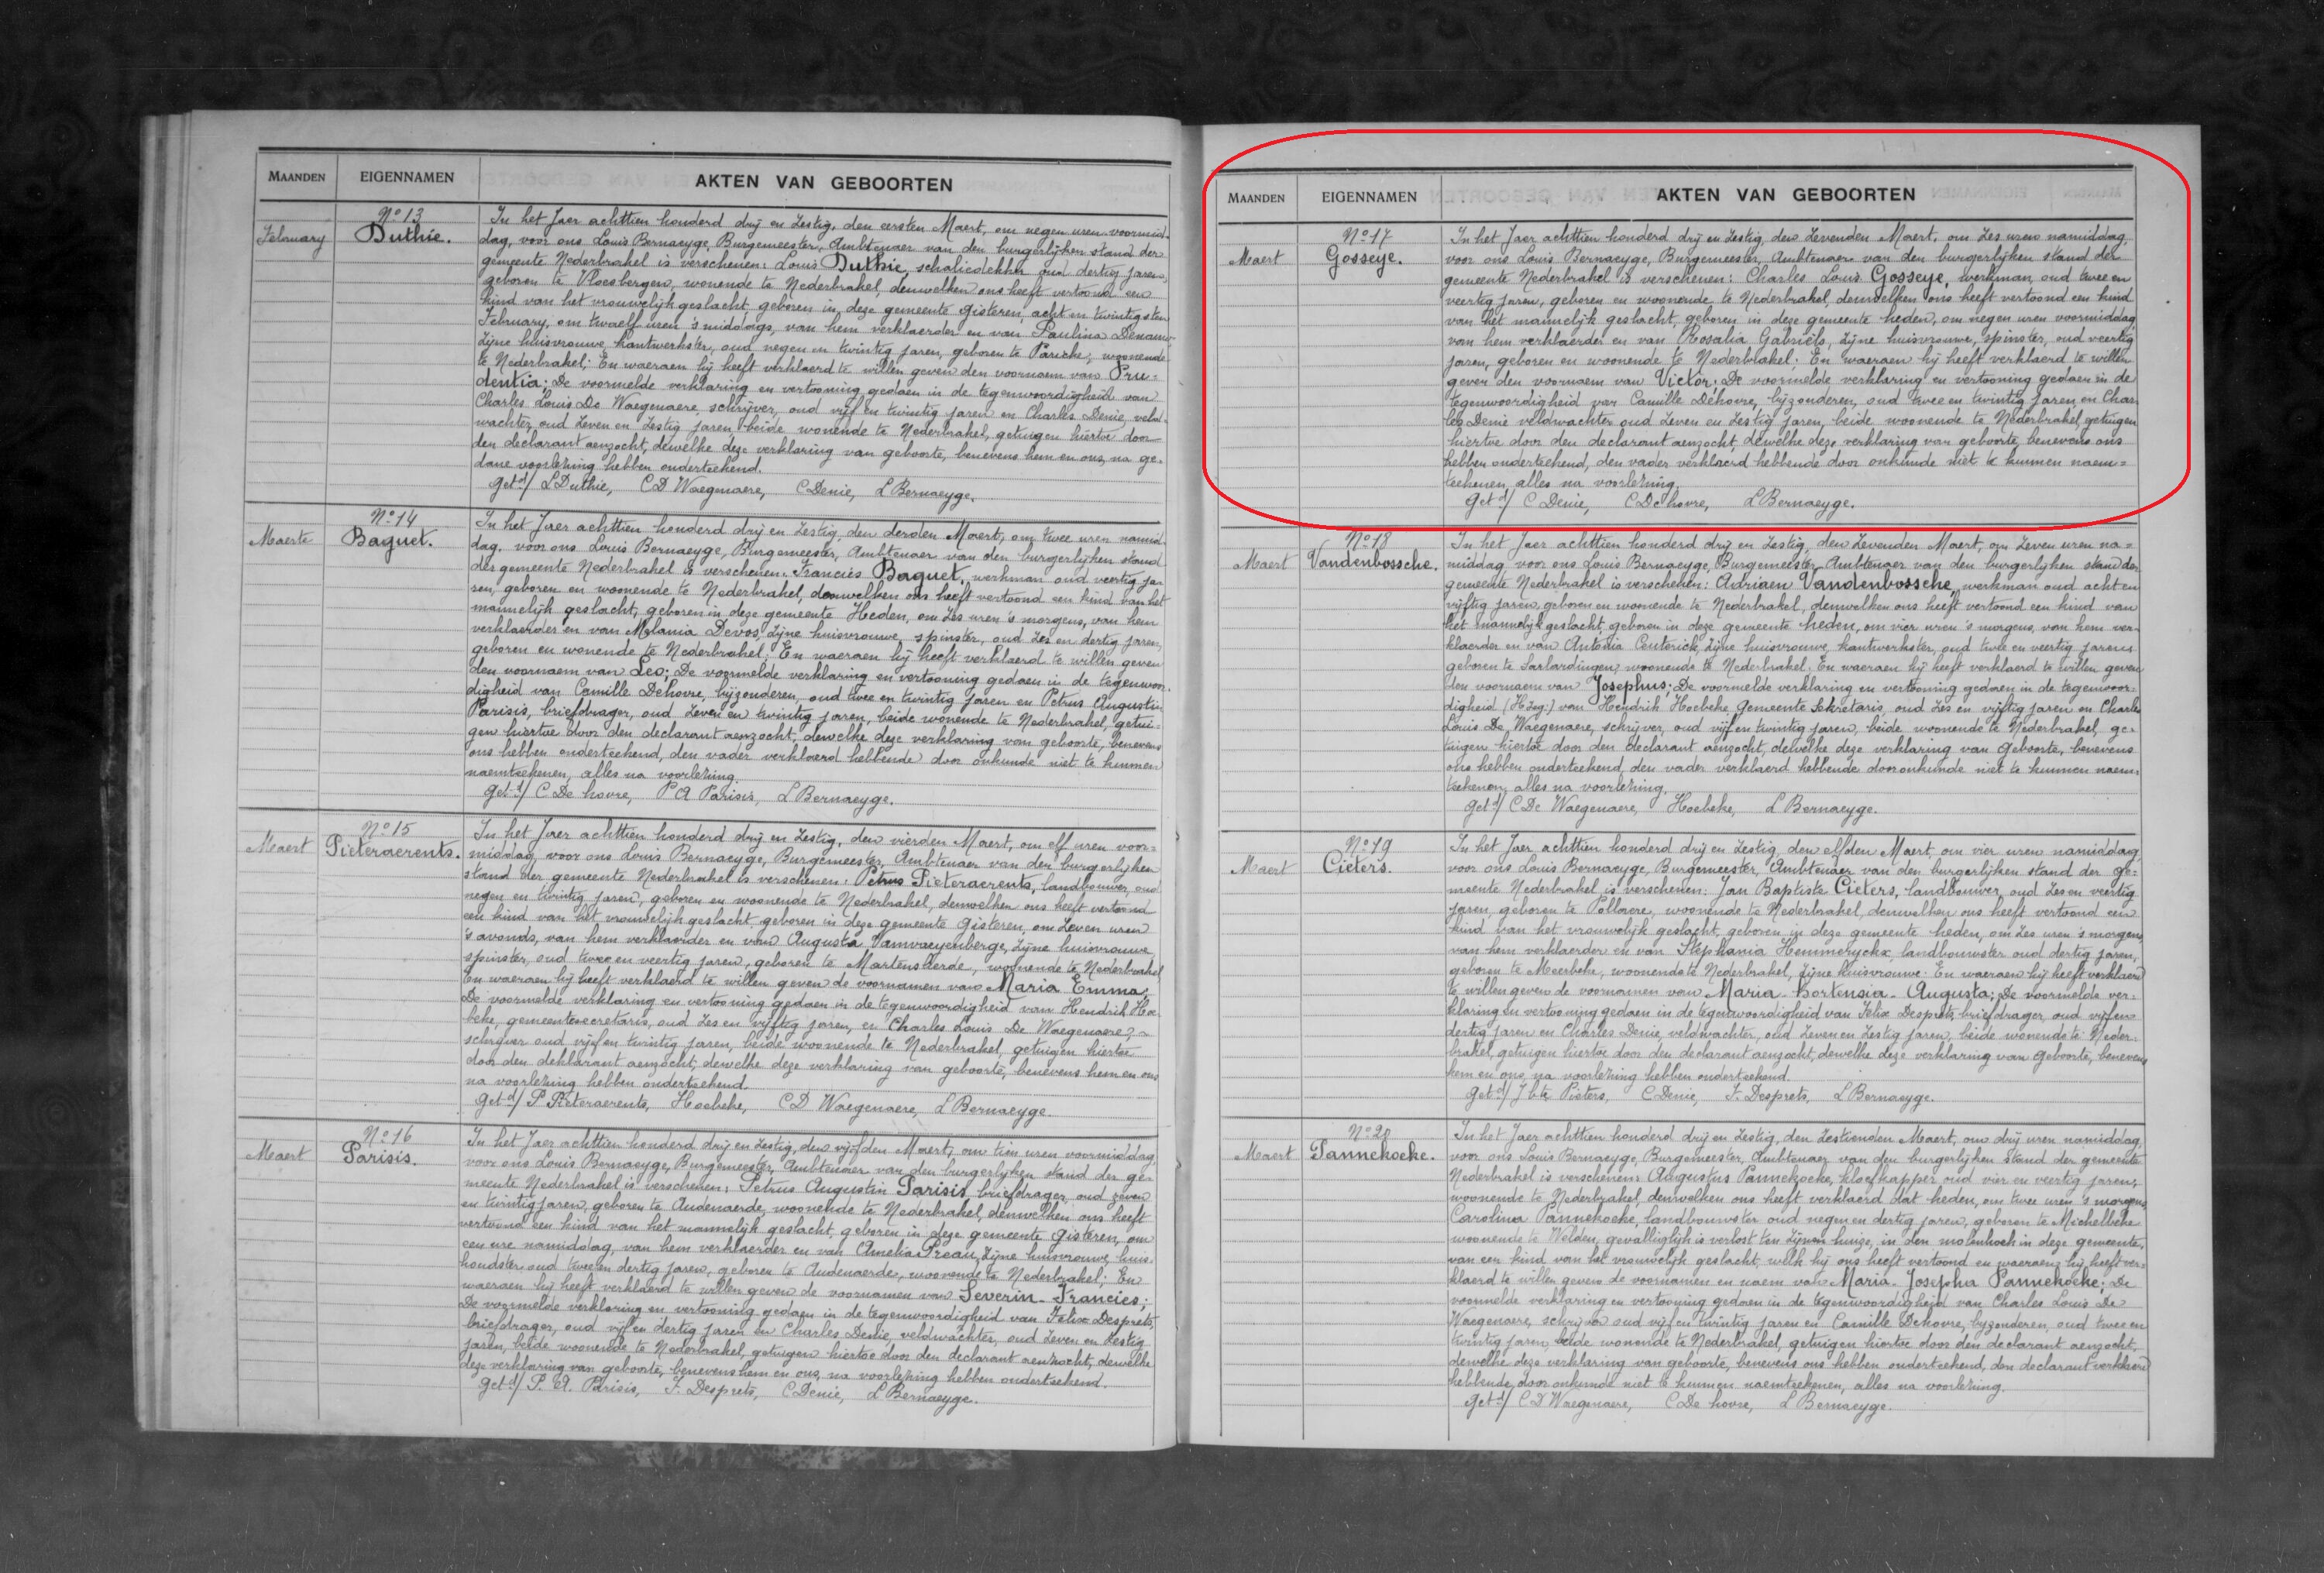 MAANDEN EIGENNAMEN AKTEN VAN GEBOORTEN
February
Nº 13
Duthie.
In het Jaer achttien honderd drij en Zestig, den eersten Maert, om negen uren voormid-
dag, voor ons Louis Bernaeyge, Burgemeester, Ambtenaer van den burgerlijken stand der
gemeente Nederbrakel is verschenen: Louis Duthie, schaliedekker oud dertig jaren,
geboren te Vloesbergen, wonende te Nederbrakel, denwelken ons heeft vertoond een
kind van het vrouwelijk geslacht, geboren in deze gemeente gisteren, acht en twintigsten
February, om twaelf uren 's middags, van hem verklaerder en van Paulina
zijne huisvrouwe, kantwerkster, oud negen en twintig jaren, geboren te Paricke, woonende
te Nederbrakel; En waeraen hij heeft verklaerd te willen geven den voornaem van Pru-
dentia; De voormelde verklaring en vertooning gedaen in de tegenwoordigheid van
Charles Louis De Waegenaere, schrijver, oud vijf en twintig jaren en Charles Denie, veld-
wachter, oud Zeven en Zestig jaren, beide wonende te Nederbrakel, getuigen hiertoe door
den declarant aenzocht, dewelke deze verklaring van geboorte, benevens hem en ons, na ge-
dane voorlezing hebben onderteekend.
Getd/ L Duthie, CD Waegenaere, C Denie, L Bernaeyge.
Maerte
Nº 14
Baguet.
In het Jaer achttien honderd drij en Zestig, den derden Maert, om twee uren namid-
dag, voor ons Louis Bernaeyge, Burgemeester, Ambtenaer van den burgerlijken stand
der gemeente Nederbrakel is verschenen: Francies Baguet, werkman oud veertig ja-
ren, geboren en wonende te Nederbrakel, denwelken ons heeft vertoond een kind van het
mannelijk geslacht, geboren in deze gemeente Heden, om Zes uren 's morgens, van hem
verklaerder en van Melania Devos, Zijne huisvrouwe, spinster, oud Zes en dertig jaren,
geboren en wonende te Nederbrakel; En waeraen hij heeft verklaerd te willen geven
den voornaem van Leo; De voormelde verklaring en vertooning gedaen in de tegenwoor-
digheid van Camille Dehovre, bijzonderen, oud twee en twintig jaren en Petrus Augustin
Parisis, briefdrager, oud Zeven en twintig jaren, beide wonende te Nederbrakel, getui-
gen hiertoe door den declarant aenzocht, dewelke deze verklaring van geboorte, benevens
ons hebben onderteekend, den vader verklaerd hebbende door onkunde niet te kunnen
naemteekenen, alles na voorlezing.
Getd/ C De hovre, P A Parisis, L Bernaeyge.
Maert
Nº 15
Pieteraerents.
In het Jaer achttien honderd drij en Zestig, den vierden Maert, om elf uren voor-
middag, voor ons Louis Bernaeyge, Burgemeester, Ambtenaer van den burgerlijken
stand der gemeente Nederbrakel is verschenen: Petrus Pieteraerents, landbouwer, oud
negen en twintig jaren, geboren en woonende te Nederbrakel, denwelken ons heeft vertoond
een kind van het vrouwelijk geslacht, geboren in deze gemeente gisteren, om Zeven uren
's avonds, van hem verklaerder en van Augusta Vanvaeyenberge, Zijne huisvrouwe
spinster, oud twee en veertig jaren, geboren te Martenslierde, woonende te Nederbrakel
En waeraen hij heeft verklaerd te willen geven de voornamen van Maria Emma;
De voormelde verklaring en vertooning gedaen in de tegenwoordigheid van Hendrik Hoe-
beke, gemeentesecretaris, oud Zes en vijftig jaren, en Charles Louis De Waegenaere,
schrijver oud vijf en twintig jaren, beide woonende te Nederbrakel, getuigen hiertoe
door den deklarant aenzocht, dewelke deze verklaring van geboorte, benevens hem en ons
na voorlezing hebben onderteekend.
Getd/ P Pieteraerents, Hoebeke, CD Waegenaere, L Bernaeyge.
Maert
Nº 16
Parisis.
In het Jaer achttien honderd drij en Zestig, den vijfden Maert, om tien uren voormiddag,
voor ons Louis Bernaeyge, Burgemeester, Ambtenaer van den burgerlijken stand der ge-
meente Nederbrakel is verschenen; Petrus Augustin Parisis, briefdrager, oud zeven
en twintig jaren, geboren te Audenaerde, woonende te Nederbrakel, denwelken ons heeft
vertoond een kind van het mannelijk geslacht, geboren in deze gemeente gisteren, om
een ure namiddag, van hem verklaerder en van Amelia Preau, Zijne huisvrouwe, huis-
houdster oud twee en dertig jaren, geboren te Audenaerde, woonende te Nederbrakel; En
waeraen hij heeft verklaerd te willen geven de voornamen van Severin-Francies;
De voormelde verklaring en vertooning gedaen in de tegenwoordigheid van Felix Desprets,
briefdrager, oud vijf en dertig jaren en Charles Denie, veldwachter, oud Zeven en Zestig
jaren, beide woonende te Nederbrakel, getuigen hiertoe door den declarant aenzocht, dewelke
deze verklaring van geboorte, benevens hem en ons, na voorlezing hebben onderteekend.
Getd/ P. A. Parisis, F. Desprets, C Denie, L Bernaeyge.
MAANDEN EIGENNAMEN AKTEN VAN GEBOORTEN
Maert
Nº 17
Gosseye.
In het Jaer achttien honderd drij en Zestig, den Zevenden Maert, om Zes uren namiddag,
voor ons Louis Bernaeyge, Burgemeester, Ambtenaer van den burgerlijken stand der
gemeente Nederbrakel is verschenen: Charles Louis Gosseye, werkman, oud twee en
veertig jaren, geboren en woonende te Nederbrakel, denwelken ons heeft vertoond een kind
van het mannelijk geslacht, geboren in deze gemeente heden, om negen uren voormiddag,
van hem verklaerder en van Rosalia Gabriels, Zijne huisvrouwe, spinster, oud veertig
jaren, geboren en woonende te Nederbrakel; En waeraen hij heeft verklaerd te willen
geven den voornaem van Victor. De voormelde verklaring en vertooning gedaen in de
tegenwoordigheid van Camille Dehovre, bijzonderen, oud twee en twintig jaren en Char-
les Denie veldwachter oud Zeven en Zestig jaren, beide woonende te Nederbrakel getuigen
hiertoe door den declarant aenzocht, dewelke deze verklaring van geboorte, benevens ons
hebben onderteekend, den vader verklaerd hebbende door onkunde niet te kunnen naem-
teekenen, alles na voorlezing.
Getd/ C Denie, C De hovre, L Bernaeyge.
Maert
Nº 18
Vandenbossche.
In het Jaer achttien honderd drij en Zestig, den Zevenden Maert, om Zeven uren na-
middag voor ons Louis Bernaeyge, Burgemeester, Ambtenaer van den burgerlijken stand der
gemeente Nederbrakel is verschenen: Adriaen Vandenbossche, werkman oud acht en
vijftig jaren, geboren en woonende te Nederbrakel, denwelken ons heeft vertoond een kind van
het mannelijk geslacht, geboren in deze gemeente heden, om vier uren 's morgens, van hem ver-
klaerder en van Antonia Ceuterick, Zijne huisvrouwe, kantwerkster, oud twee en veertig jaren
geboren te Sarlardingen, woonende te Nederbrakel. En waeraen hij heeft verklaerd te willen geven
den voornaem van Josephus; De voormelde verklaring en vertooning gedaen in de tegenwoor-
digheid van Hendrik Hoebeke, Gemeente Sekretaris, oud Zes en vijftig jaren en Charles
Louis De Waegenaere, schrijver, oud vijf en twintig jaren, beide woonende te Nederbrakel, ge-
tuigen hiertoe door den declarant aenzocht, dewelke deze verklaring van Geboorte, benevens
ons hebben onderteekend, den vader verklaerd hebbende door onkunde niet te kunnen naem-
teekenen, alles na voorlezing.
Getd/ C De Waegenaere, Hoebeke, L Bernaeyge.
Maert
Nº 19
Pieters.
In het Jaer achttien honderd drij en Zestig, den elfden Maert, om vier uren namiddag,
voor ons Louis Bernaeyge, Burgemeester, Ambtenaer van den burgerlijken stand der ge-
meente Nederbrakel is verschenen: Jan Baptiste Pieters, landbouwer, oud Zes en veertig
jaren, geboren te Pollaere, woonende te Nederbrakel, denwelken ons heeft vertoond een
kind van het vrouwelijk geslacht, geboren in deze gemeente heden, om Zes uren 's morgens,
van hem verklaerder en van Stephania Hemmeryckx, landbouwster oud dertig jaren,
geboren te Meerbeke, woonende te Nederbrakel, Zijne huisvrouwe. En waeraen hij heeft verklaerd
te willen geven de voornamen van Maria-Hortensia-Augusta; De voormelde ver-
klaring en vertooning gedaen in de tegenwoordigheid van Felix Desprets, briefdrager, oud vijf en
dertig jaren en Charles Denie, veldwachter, oud Zeven en Zestig jaren, beide wonende te Neder-
brakel, getuigen hiertoe door den declarant aenzocht, dewelke deze verklaring van Geboorte, benevens
hem en ons, na voorlezing hebben onderteekend.
Getd/ J bte Pieters, C Denie, F. Desprets, L Bernaeyge.
Maert
Nº 20
Pannekoeke.
In het Jaer achttien honderd drij en Zestig, den Zestienden Maert, om drij uren namiddag,
voor ons Louis Bernaeyge, Burgemeester, Ambtenaer van den burgerlijken stand der gemeente
Nederbrakel is verschenen: Augustus Pannekoeke, kloefkapper oud vier en veertig jaren,
woonende te Nederbrakel, denwelken ons heeft verklaerd dat heden, om twee uren 's morgens,
Carolina Pannekoeke, landbouwster oud negen en dertig jaren, geboren te Michelbeke
woonende te Welden, gevalliglijk is verlost ten Zijnen huize, in den molenhoek in deze gemeente,
van een kind van het vrouwelijk geslacht, welk hij ons heeft vertoond en waeraen hij heeft ver-
klaerd te willen geven de voornamen en naem van Maria-Josepha Pannekoeke; De
voormelde verklaring en vertooning gedaen in de tegenwoordigheid van Charles Louis De
Waegenaere, schrijver oud vijf en twintig jaren en Camille Dehovre, bijzonderen, oud twee en
twintig jaren, beide wonende te Nederbrakel, getuigen hiertoe door den declarant aenzocht,
dewelke deze verklaring van geboorte, benevens ons hebben onderteekend, den declarant verklaerd
hebbende door onkunde niet te kunnen naemteekenen, alles na voorlezing.
Getd/ C D Waegenaere, C De hovre, L Bernaeyge.